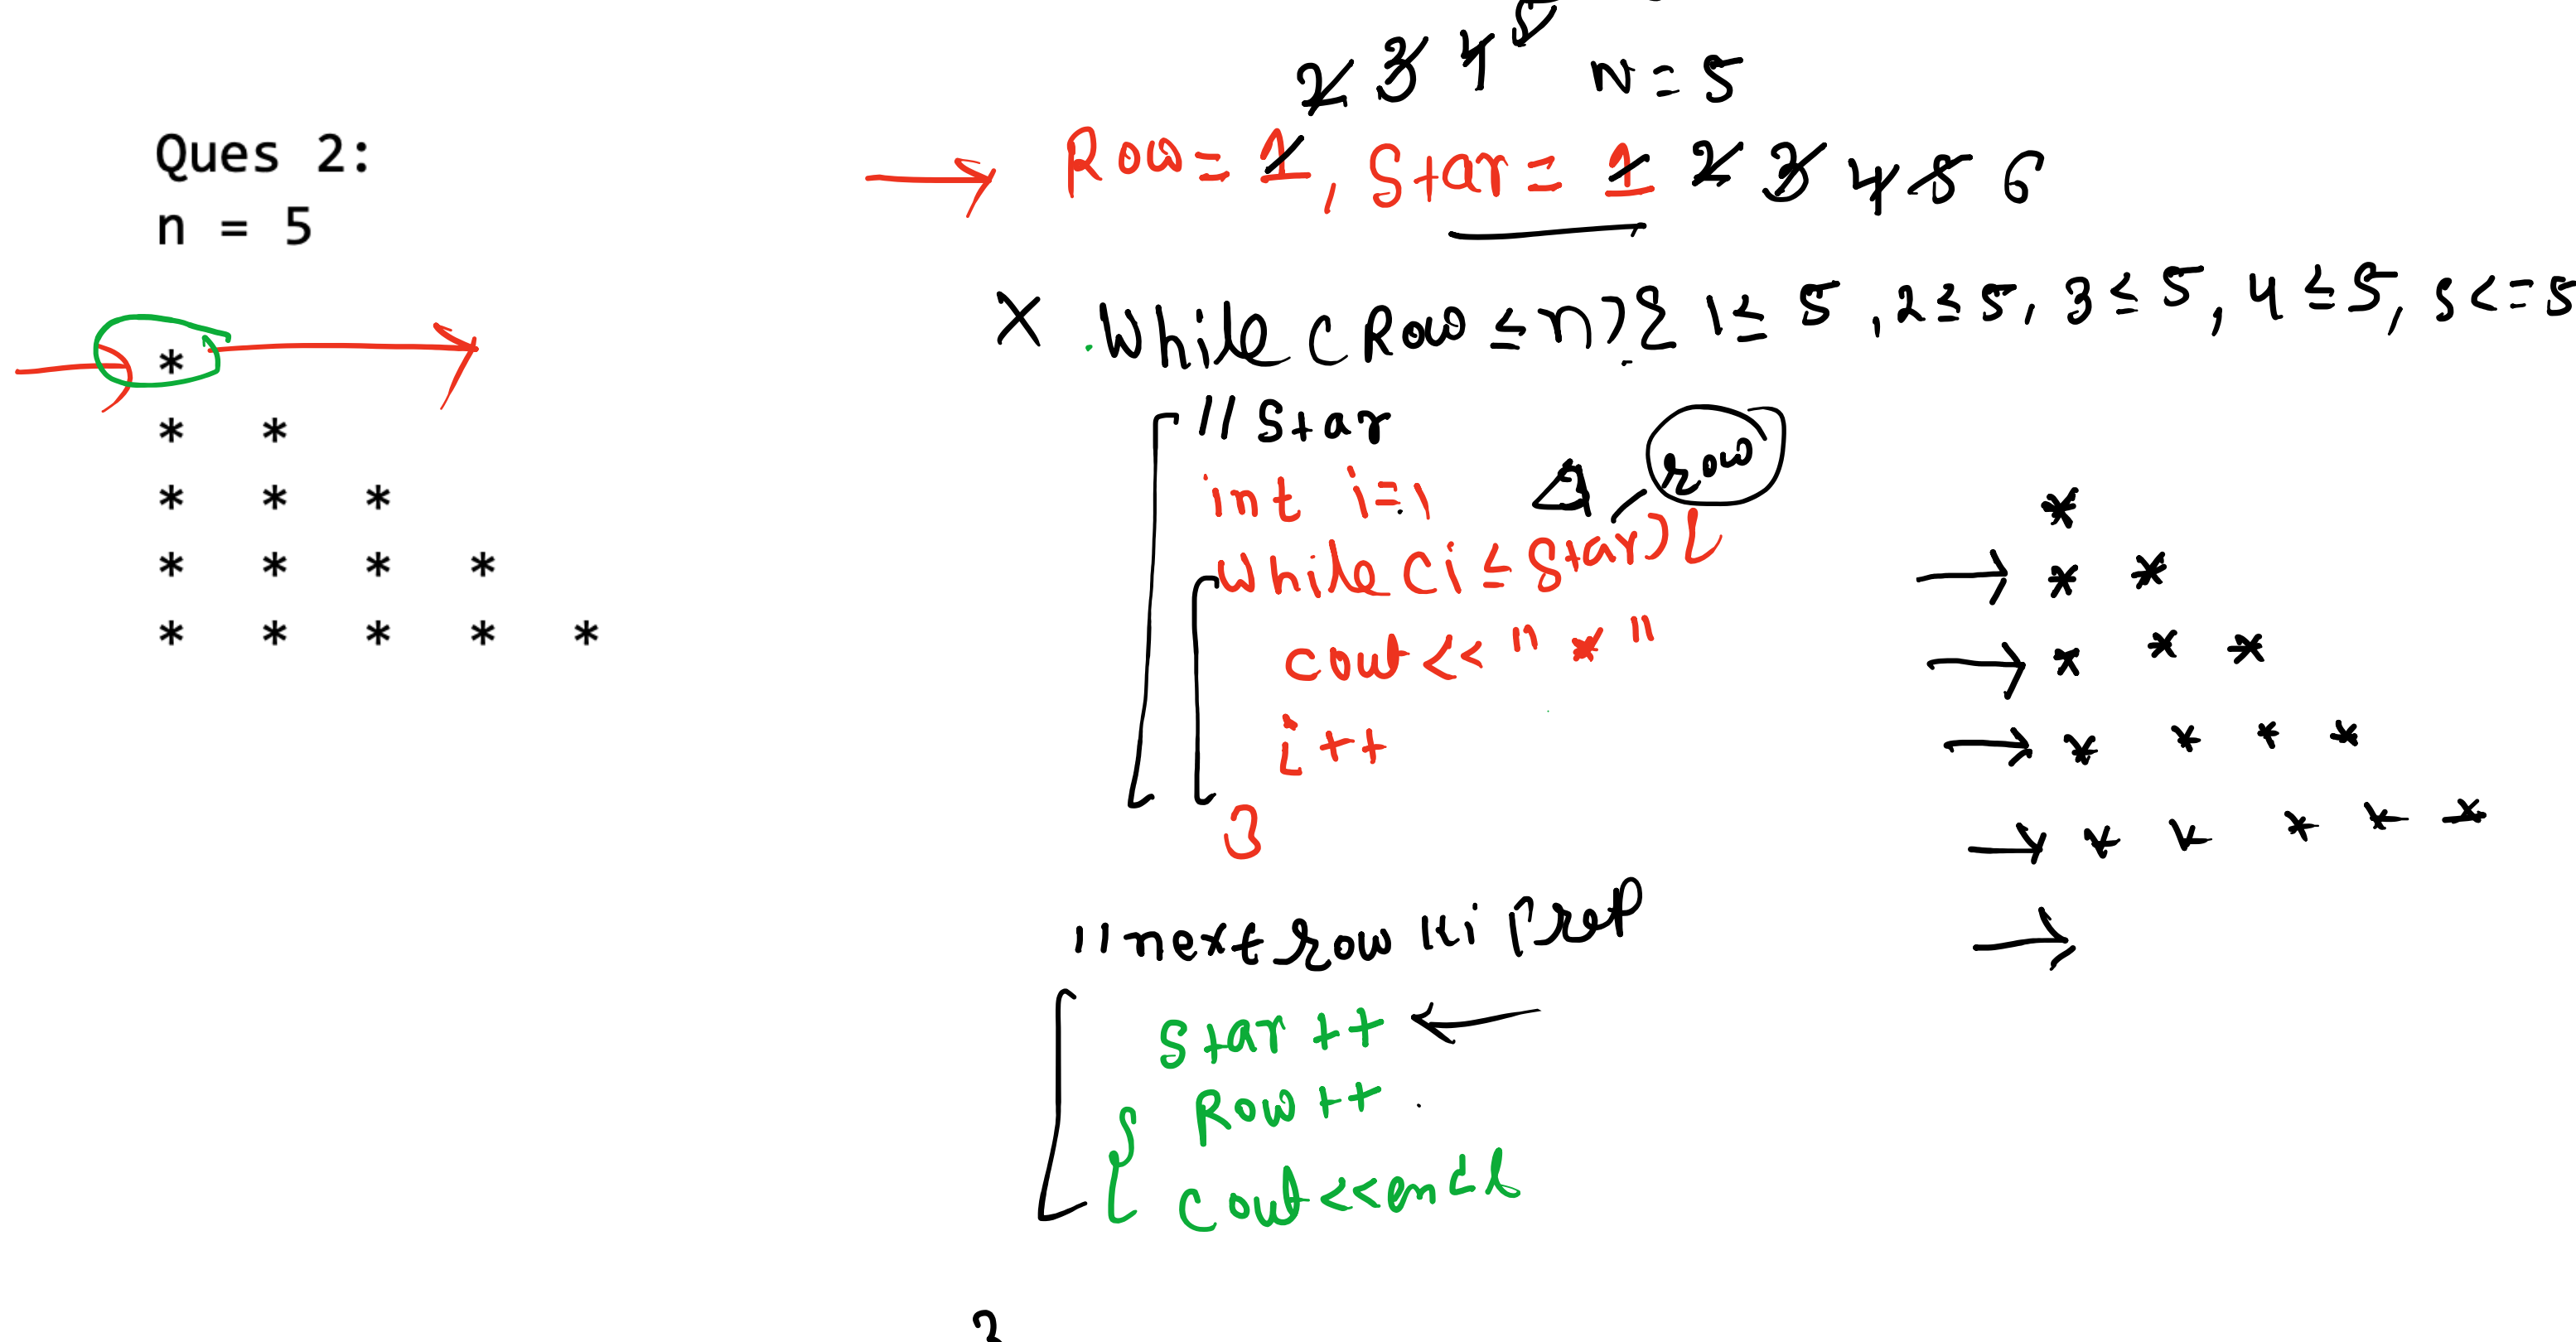 Ques 2:
n = 5
*
* *
* * *
* * * *
* * * * *
2 3 4 5 N = 5
Row = 1, Star = 1 2 3 4 5 6
X While (Row ≤ n) { 1 ≤ 5, 2 ≤ 5, 3 ≤ 5, 4 ≤ 5, 5 <= 5
// Star
row
int i=1
while (i ≤ Star) {
cout << " * "
i++
}
*
* *
* * *
* * * *
* * * * *
// next row ki Prep
Star ++
Row ++
cout << endl
}